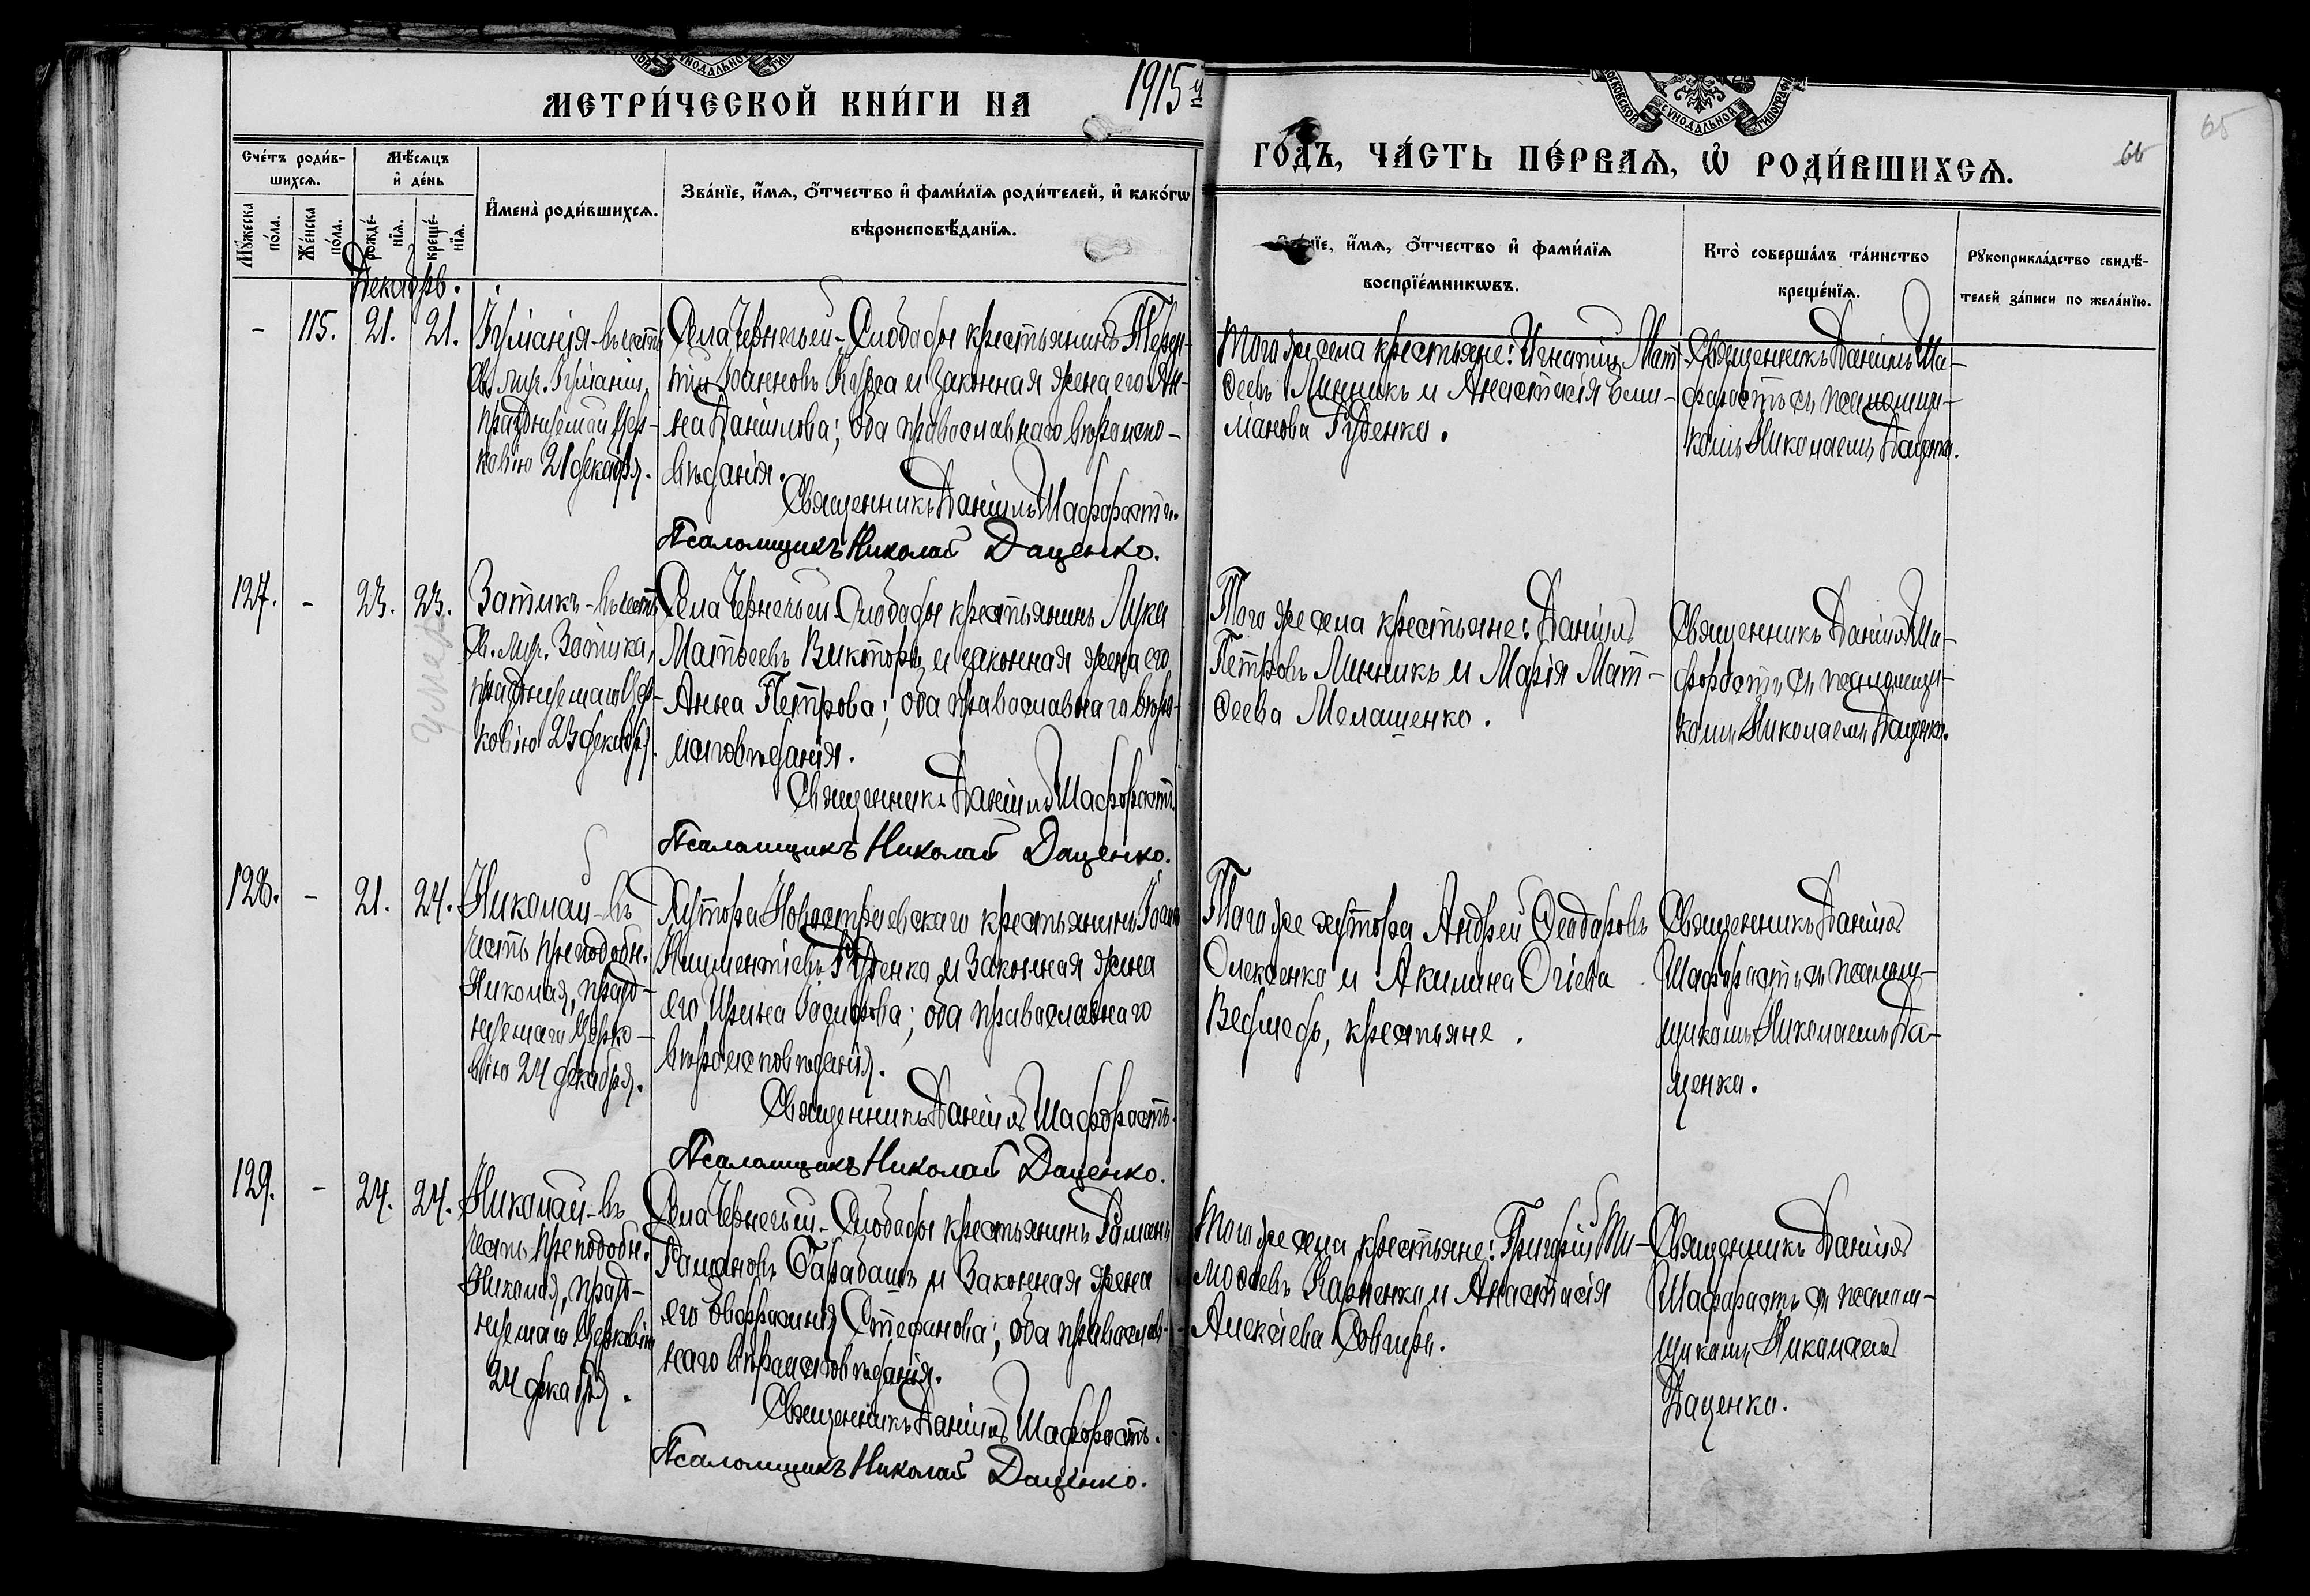 МЕТРИ́ЧЕСКОЙ КНИ́ГИ НА 1915 й
ГО́ДЪ, ЧА́СТЬ ПЕ́РВАѦ, Ѡ҆ РОДИ́ВШИХСѦ.
66
65
Сче́тъ роди́в-
шихсѧ.
Мꙋ́жеска по́ла.
Же́нска по́ла.
Мѣ́сѧцъ
и҆ де́нь
рожде́-
нїѧ.
креще́-
нїѧ.
И҆мена̀ роди́вшихсѧ.
Зва́нїе, и҆́мѧ, ѻ҆́тчество и҆ фами́лїѧ роди́телей, и҆ како́гѡ
вѣроисповѣ́данїѧ.
и҆́мѧ, ѻ҆́тчество и҆ фами́лїѧ
воспрїе́мникѡвъ.
Кто̀ соверша́лъ та́инство
креще́нїѧ.
Рꙋкоприкла́дство свидѣ́-
телей за́писи по жела́нїю.
Декабрь.
-
115.
21.
21.
Іуліанія-въ честь
Св. муч. Іуліаніи,
празднуемой Цер-
ковію 21 декабря.
Села Чернечьей-Слободы крестьянинъ Терен-
тій Іоанновъ и законная жена его Ан-
на Даніилова; оба православнаго вѣроиспо-
вѣданія.
Священникъ Даніилъ Шафоростъ.
Псаломщикъ Николай Даценко.
Того же села крестьяне: Игнатій Мат-
ѳеевъ Линникъ и Анастасія Еми-
ліанова Гуденко.
Священникъ Даніилъ Ша-
форостъ съ псаломщи-
комъ Николаемъ Даценко.
127.
-
23.
23.
умер.
Зотикъ-въ честь
Св. муч. Зотика,
празднуемаго Цер-
ковію 23 декабря.
Села Чернечьей-Слободы крестьянинъ Лука
Матѳеевъ Викторъ и законная жена его
Анна Петрова; оба православнаго вѣро-
исповѣданія.
Священникъ Даніилъ Шафоростъ.
Псаломщикъ Николай Даценко.
Того же села крестьяне: Даніилъ
Петровъ Линникъ и Марія Мат-
ѳеева Мелашенко.
Священникъ Даніилъ Ша-
форостъ съ псаломщи-
комъ Николаемъ Даценко.
128.
-
21.
24.
Николай-въ
честь преподобн.
Николая, празд-
нуемаго Церко-
вію 24 декабря.
Хутора Новостроевскаго крестьянинъ Іоаннъ
Климентіевъ Руденко и законная жена
его Ирина Іосифова; оба православнаго
вѣроисповѣданія.
Священникъ Даніилъ Шафоростъ.
Псаломщикъ Николай Даценко.
Того же хутора Андрей Ѳеодоровъ
Олексенко и Акилина Огіева
Ведмедь, крестьяне.
Священникъ Даніилъ
Шафоростъ съ псалом-
щикомъ Николаемъ Да-
ценко.
129.
-
24.
24.
Николай-въ
честь преподобн.
Николая, празд-
нуемаго Церковію
24 декабря.
Села Чернечьей-Слободы крестьянинъ Романъ
Романовъ Сарабашъ и законная жена
его Евфросинія Стефанова; оба православ-
наго вѣроисповѣданія.
Священникъ Даніилъ Шафоростъ.
Псаломщикъ Николай Даценко.
Того же села крестьяне: Григорій Ти-
моѳеевъ Карпенко и Анастасія
Алексіева Совгирь.
Священникъ Даніилъ
Шафоростъ съ псалом-
щикомъ Николаемъ
Даценко.